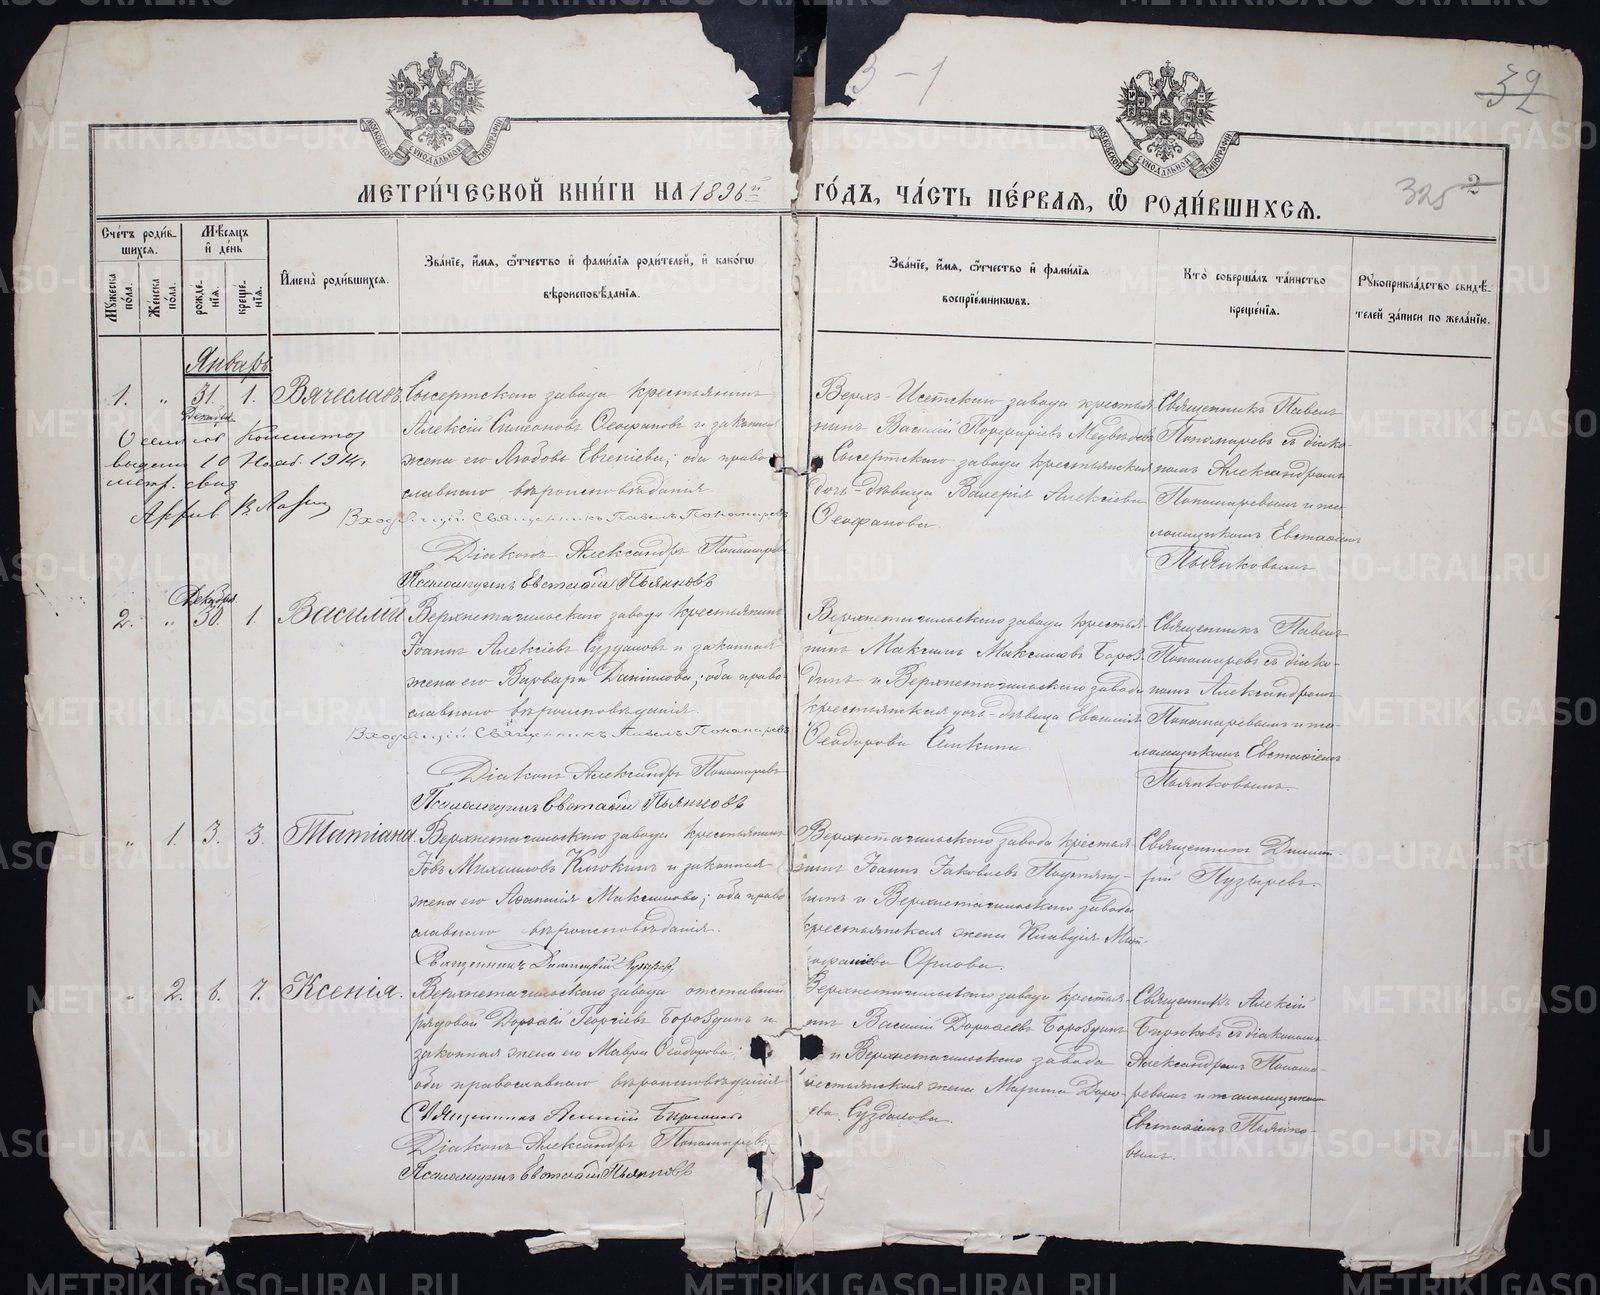 3-1
32
МОСКОВСКОЙ СѴНОДАЛЬНОЙ ТИПОГРАФІИ
МОСКОВСКОЙ СѴНОДАЛЬНОЙ ТИПОГРАФІИ
МЕТРИ́ЧЕСКОЙ КНИ́ГИ НА 1896й ГО́ДЪ, ЧА́СТЬ ПЕ́РВАЯ, Ѡ РОДИ́ВШИХСЯ.
325 2
Сче́тъ роди́в-
шихся.
Мѣ́сяцъ
и де́нь
Мꙋ́жеска по́ла.
Же́нска по́ла.
рожде́нія.
креще́нія.
Имена̀ роди́вшихся.
Зва́ніе, и́мя, ѻ́тчество и фами́лія роди́телей, и како́гѡ
вѣроисповѣ́данія.
Зва́ніе, и́мя, ѻ́тчество и фами́лія
воспріе́мникѡвъ.
Кто̀ соверша́лъ та́инство
креще́нія.
Рꙋкоприкла́дство свидѣ́-
телей за́писи по жела́нію.
Январь
1. " 31. 1. Вячеславъ.
Декабря
выдано 10 Нояб. 1914г.
метр. свид.
Сысертскаго завода крестьянинъ
Алексій Симеоновъ Ѳеофановъ и законная
жена его Любовь Евгеніева; оба право-
славнаго вѣроисповѣданія
Входящій Священникъ Павелъ Пономаревъ
Діаконъ Александръ Пономаревъ
Псаломщикъ Евстафій Пьянковъ
Верхъ-Исетскаго завода крестья-
нинъ Василій Порфиріевъ Медвѣдевъ
и Сысертскаго завода крестьянская
дочь-дѣвица Валерія Алексіева
Ѳеофанова.
Священникъ Павелъ
Пономаревъ съ діако-
номъ Александромъ
Пономаревымъ и пса-
ломщикомъ Евстафіемъ
Пьянковымъ
Декабря
2. " 30. 1. Василій
Верхнетагильскаго завода крестьянинъ
Іоаннъ Алексіевъ Суздаловъ и законная
жена его Варвара Даніилова; оба право-
славнаго вѣроисповѣданія.
Входящій Священникъ Павелъ Пономаревъ
Діаконъ Александръ Пономаревъ
Псаломщикъ Евстафій Пьянковъ
Верхнетагильскаго завода крестья-
нинъ Максимъ Максимовъ Бороз-
динъ и Верхнетагильскаго завода
крестьянская дочь-дѣвица Евѳимія
Ѳеодорова Селкина.
Священникъ Павелъ
Пономаревъ съ діако-
номъ Александромъ
Пономаревымъ и пса-
ломщикомъ Евстафіемъ
Пьянковымъ.
" 1. 3. 3. Татіана.
Верхнетагильскаго завода крестьянинъ
Іовъ Михаиловъ Клюкинъ и законная
жена его Аѳанасія Максимова; оба право-
славнаго вѣроисповѣданія.
Священникъ Димитрій Пузыревъ
Верхнетагильскаго завода крестья-
нинъ Іоаннъ Іаковлевъ
и Верхнетагильскаго завода
крестьянская жена Клавдія Мит-
рофаніева Орлова.
Священникъ Димит-
рій Пузыревъ.
" 2. 6. 7. Ксенія.
Верхнетагильскаго завода отставной
рядовой Дороѳей Георгіевъ Бороздинъ и
законная жена его Мавра Ѳеодорова;
оба православнаго вѣроисповѣданія
Священникъ Алексій Бирюковъ
Діаконъ Александръ Пономаревъ
Псаломщикъ Евстафій Пьянковъ
Верхнетагильскаго завода крестья-
нинъ Василій Дороѳеевъ Бороздинъ
и Верхнетагильскаго завода
крестьянская жена Марина Доро-
ѳеева Суздалова.
Священникъ Алексій
Бирюковъ съ діакономъ
Александромъ Понома-
ревымъ и псаломщикомъ
Евстафіемъ Пьянко-
вымъ.
METRIKI.GASO-URAL.RU